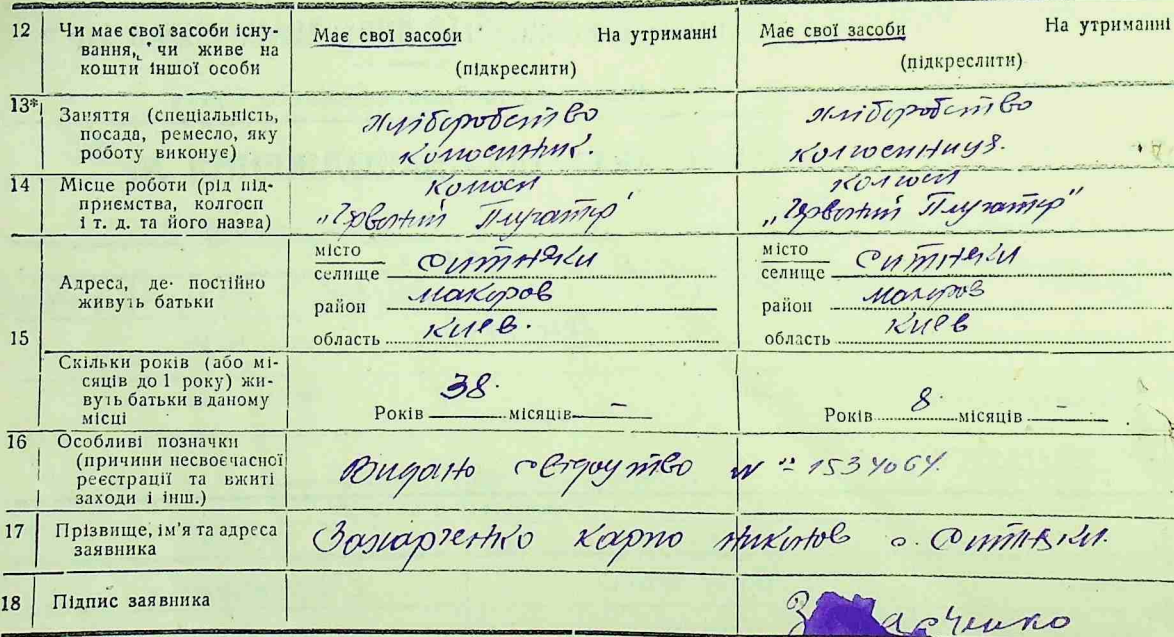 12 Чи має свої засоби існування, чи живе на кошти іншої особи
Має свої засоби На утриманні
(підкреслити)
Має свої засоби На утриманні
(підкреслити)
13* Заняття (спеціальність, посада, ремесло, яку роботу виконує)
хліборобство
колгоспник.
хліборобство
колгоспниця.
14 Місце роботи (рід підприємства, колгосп і т. д. та його назва)
колгосп
„Червоний Плугатар"
колгосп
„Червоний Плугатар"
15 Адреса, де постійно живуть батьки
місто
селище Ситняки
район Макаров
область Киев.
місто
селище Ситняки
район Макаров
область Киев
Скільки років (або місяців до 1 року) живуть батьки в даному місці
Років 38. місяців –
Років 8. місяців –
16 Особливі позначки (причини несвоєчасної реєстрації та вжиті заходи і інш.)
Видано свідоцтво № 1534064.
17 Прізвище, ім'я та адреса заявника
Захарченко Карпо с. Ситняки.
18 Підпис заявника